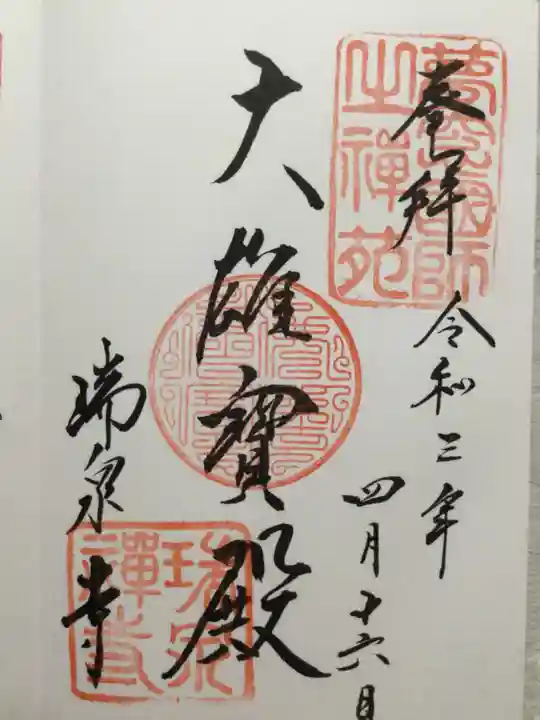 奉拝
夢窓國師
之禅苑
令和三年
四月十六日
大雄寶殿
瑞泉寺
瑞泉
禅寺